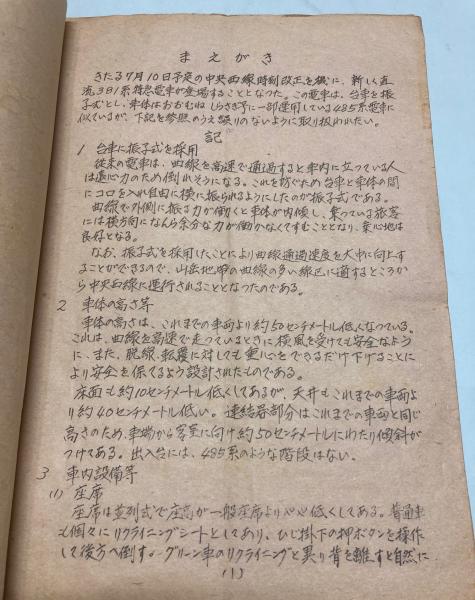 まえがき
きたる7月10日予定の中央西線時刻改正を機に、新しく直
流381系特急電車が登場することとなった。この電車は、台車を振
子式とし、車体はおおむねしらさぎ号に一部運用している485系電車に
似ているが、下記を参照のうえ誤りのないように取り扱われたい。
記
1 台車に振子式を採用
従来の電車は、曲線を高速で通過すると車内に立っている人
は遠心力のため倒れそうになる。これを防ぐため台車と車体の間
にコロを入れ自由に横に振られるようにしたのが振子式である。
曲線で外側に振る力が働くと車体が内傾し、乗っている旅客
には横方向になんら余分な力が働かなくてすむこととなり、乗心地は
良好となる。
なお、振子式を採用したことにより曲線通過速度を大巾に向上す
ることができるので、山岳地帯の曲線の多い線区に適するところか
ら中央西線に運行されることとなったのである。
2 車体の高さ等
車体の高さは、これまでの車両より約50センチメートル低くなっている。
これは、曲線を高速で走っているときに横風を受けても安全なよう
に、また、脱線、転覆に対しても重心をできるだけ下げることに
より安全を保てるよう設計されたものである。
床面も約10センチメートル低くしてあるが、天井もこれまでの車両よ
り約40センチメートル低い。連結器部分はこれまでの車両と同じ
高さのため、車端から客室に向け約50センチメートルにわたり傾斜が
つけてある。出入台には、485系のような階段はない。
3 車内設備等
(1) 座席
座席は並列式で座高が一般座席より心心低くしてある。普通車
も個々にリクライニングシートとしてあり、ひじ掛下の押ボタンを操作
して後方へ倒す。グリーン車のリクライニングと異り背を離すと自然に
(1)